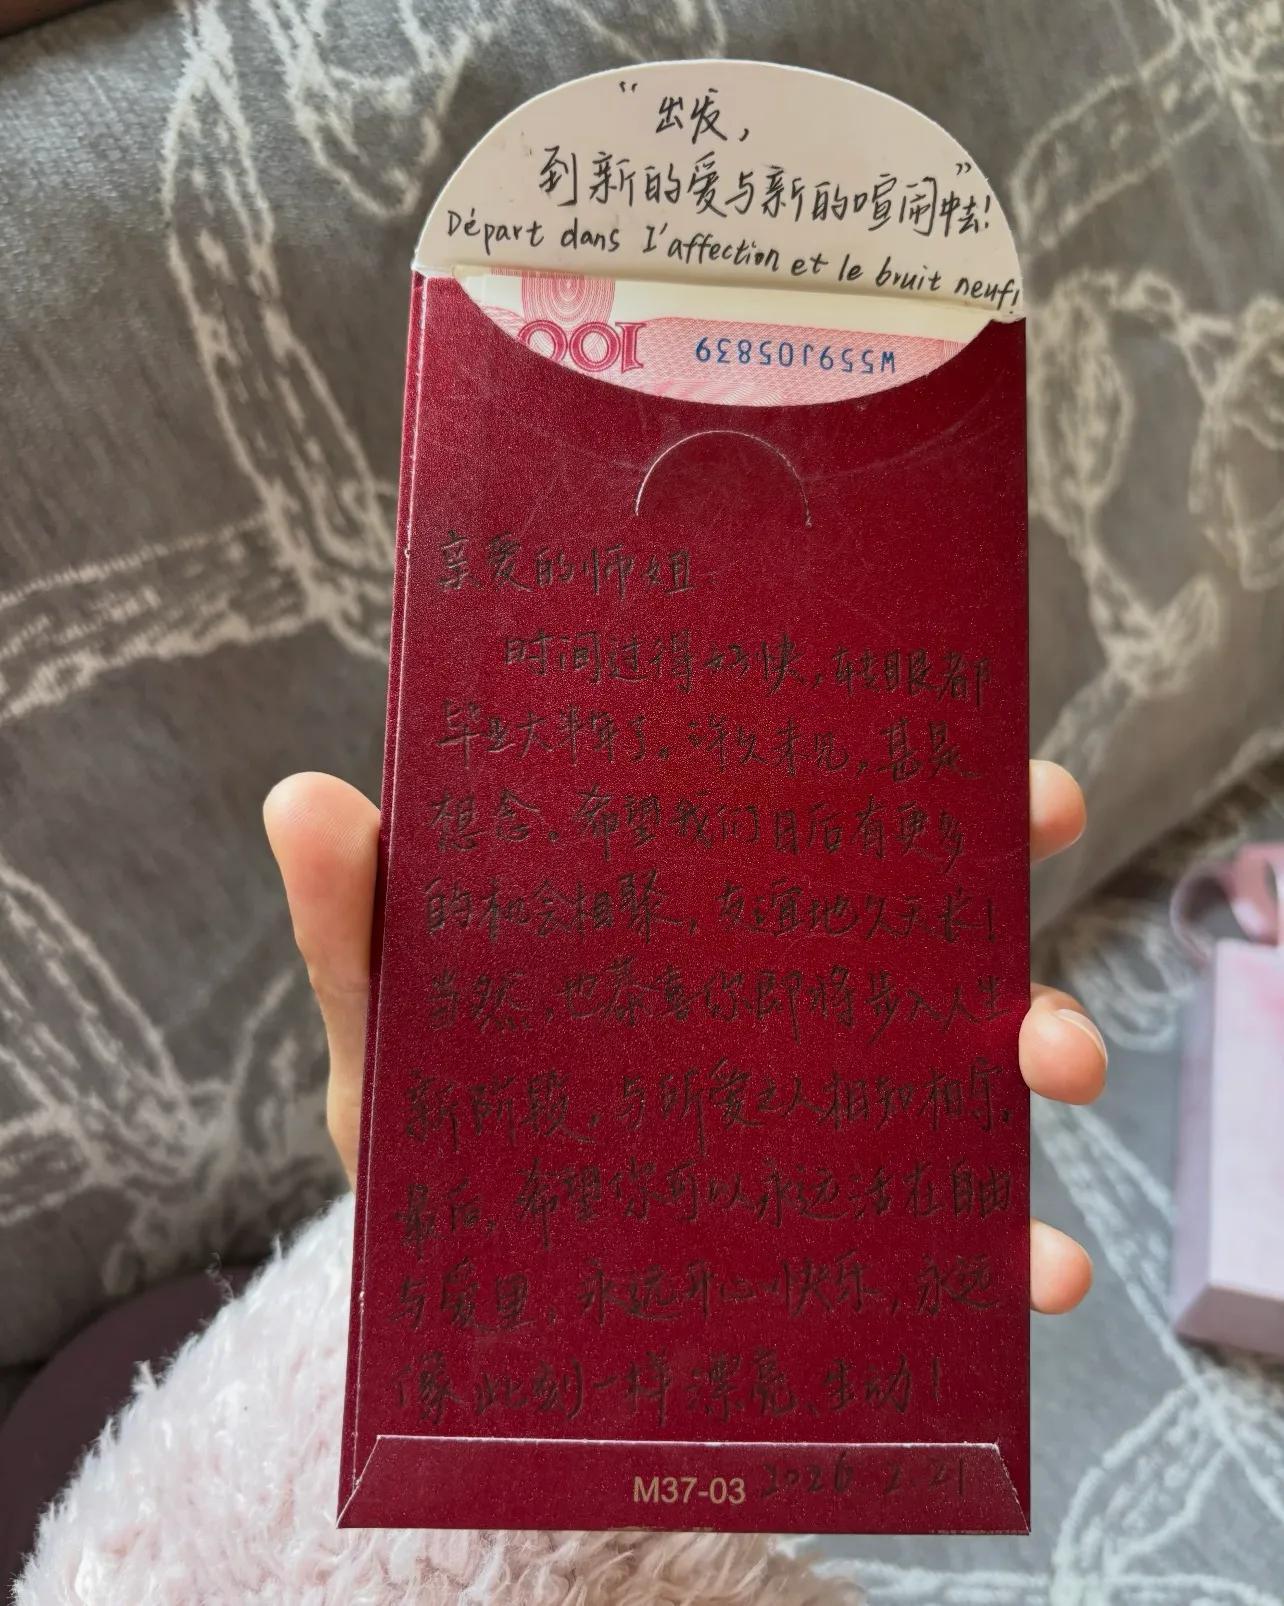 “出发，
到新的爱与新的喧闹中去！”
Départ dans l'affection et le bruit neufs!
100
W559J05839
亲爱的师姐：
时间过得好快，转眼都
毕业大半年了。许久未见，甚是
想念。希望我们日后有更多
的机会相聚，友谊地久天长！
当然，也恭喜你即将步入人生
新阶段，与所爱之人相知相守。
最后，希望你可以永远活在自由
与爱里，永远开心快乐，永远
像此刻一样漂亮、生动！
M37-03 2026.2.21